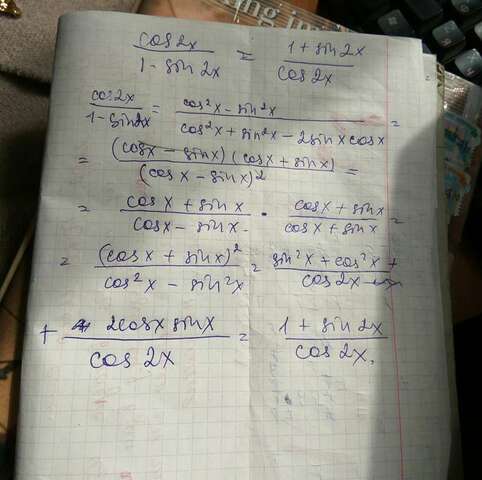 cos2x / 1 - sin 2x = 1 + sin 2x / cos 2x
cos2x / 1 - sin2x = cos²x - sin²x / cos²x + sin²x - 2sin x cosx =
= (cosx - sinx) (cosx + sinx) / (cosx - sinx)2 =
= cosx + sinx / cosx - sinx · cosx + sinx / cosx + sinx =
= (cosx + sinx)² / cos²x - sin²x = sin²x + cos²x + / cos2x
+ 2cosx sinx / cos 2x = 1 + sin 2x / cos 2x.